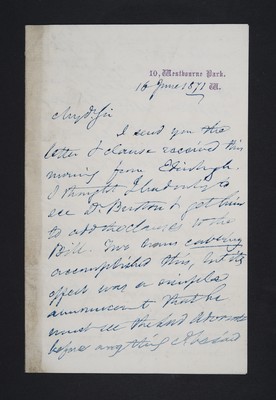 10, Westbourne Park,
W.
16 June 1871
My dr Sir
I send you the
letter & clause received this
morning from Edinburgh.
I thought I had only to
see Dr. Burton & get him
to add the clauses to the
Bill. Two hours
accomplished this, but the
effect was a simple
announcement that he
must see the Lord Advocate
before anything